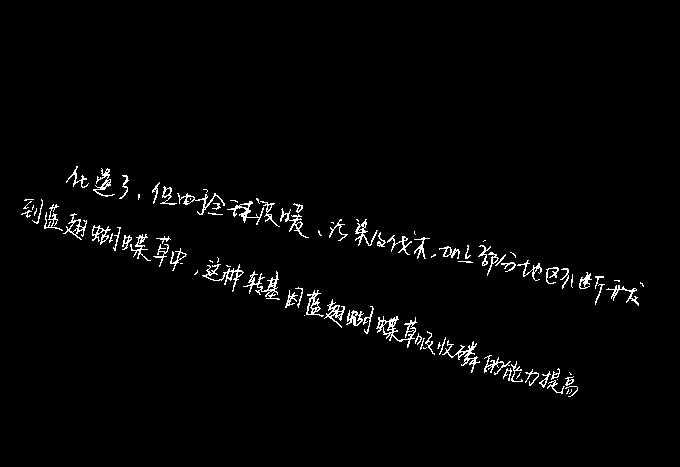 化造了、但由于全球变暖、污染及伐木,加上部分地区不断开发
到蓝翅蝴蝶草中,这种转基因蓝翅蝴蝶草吸收磷的能力提高